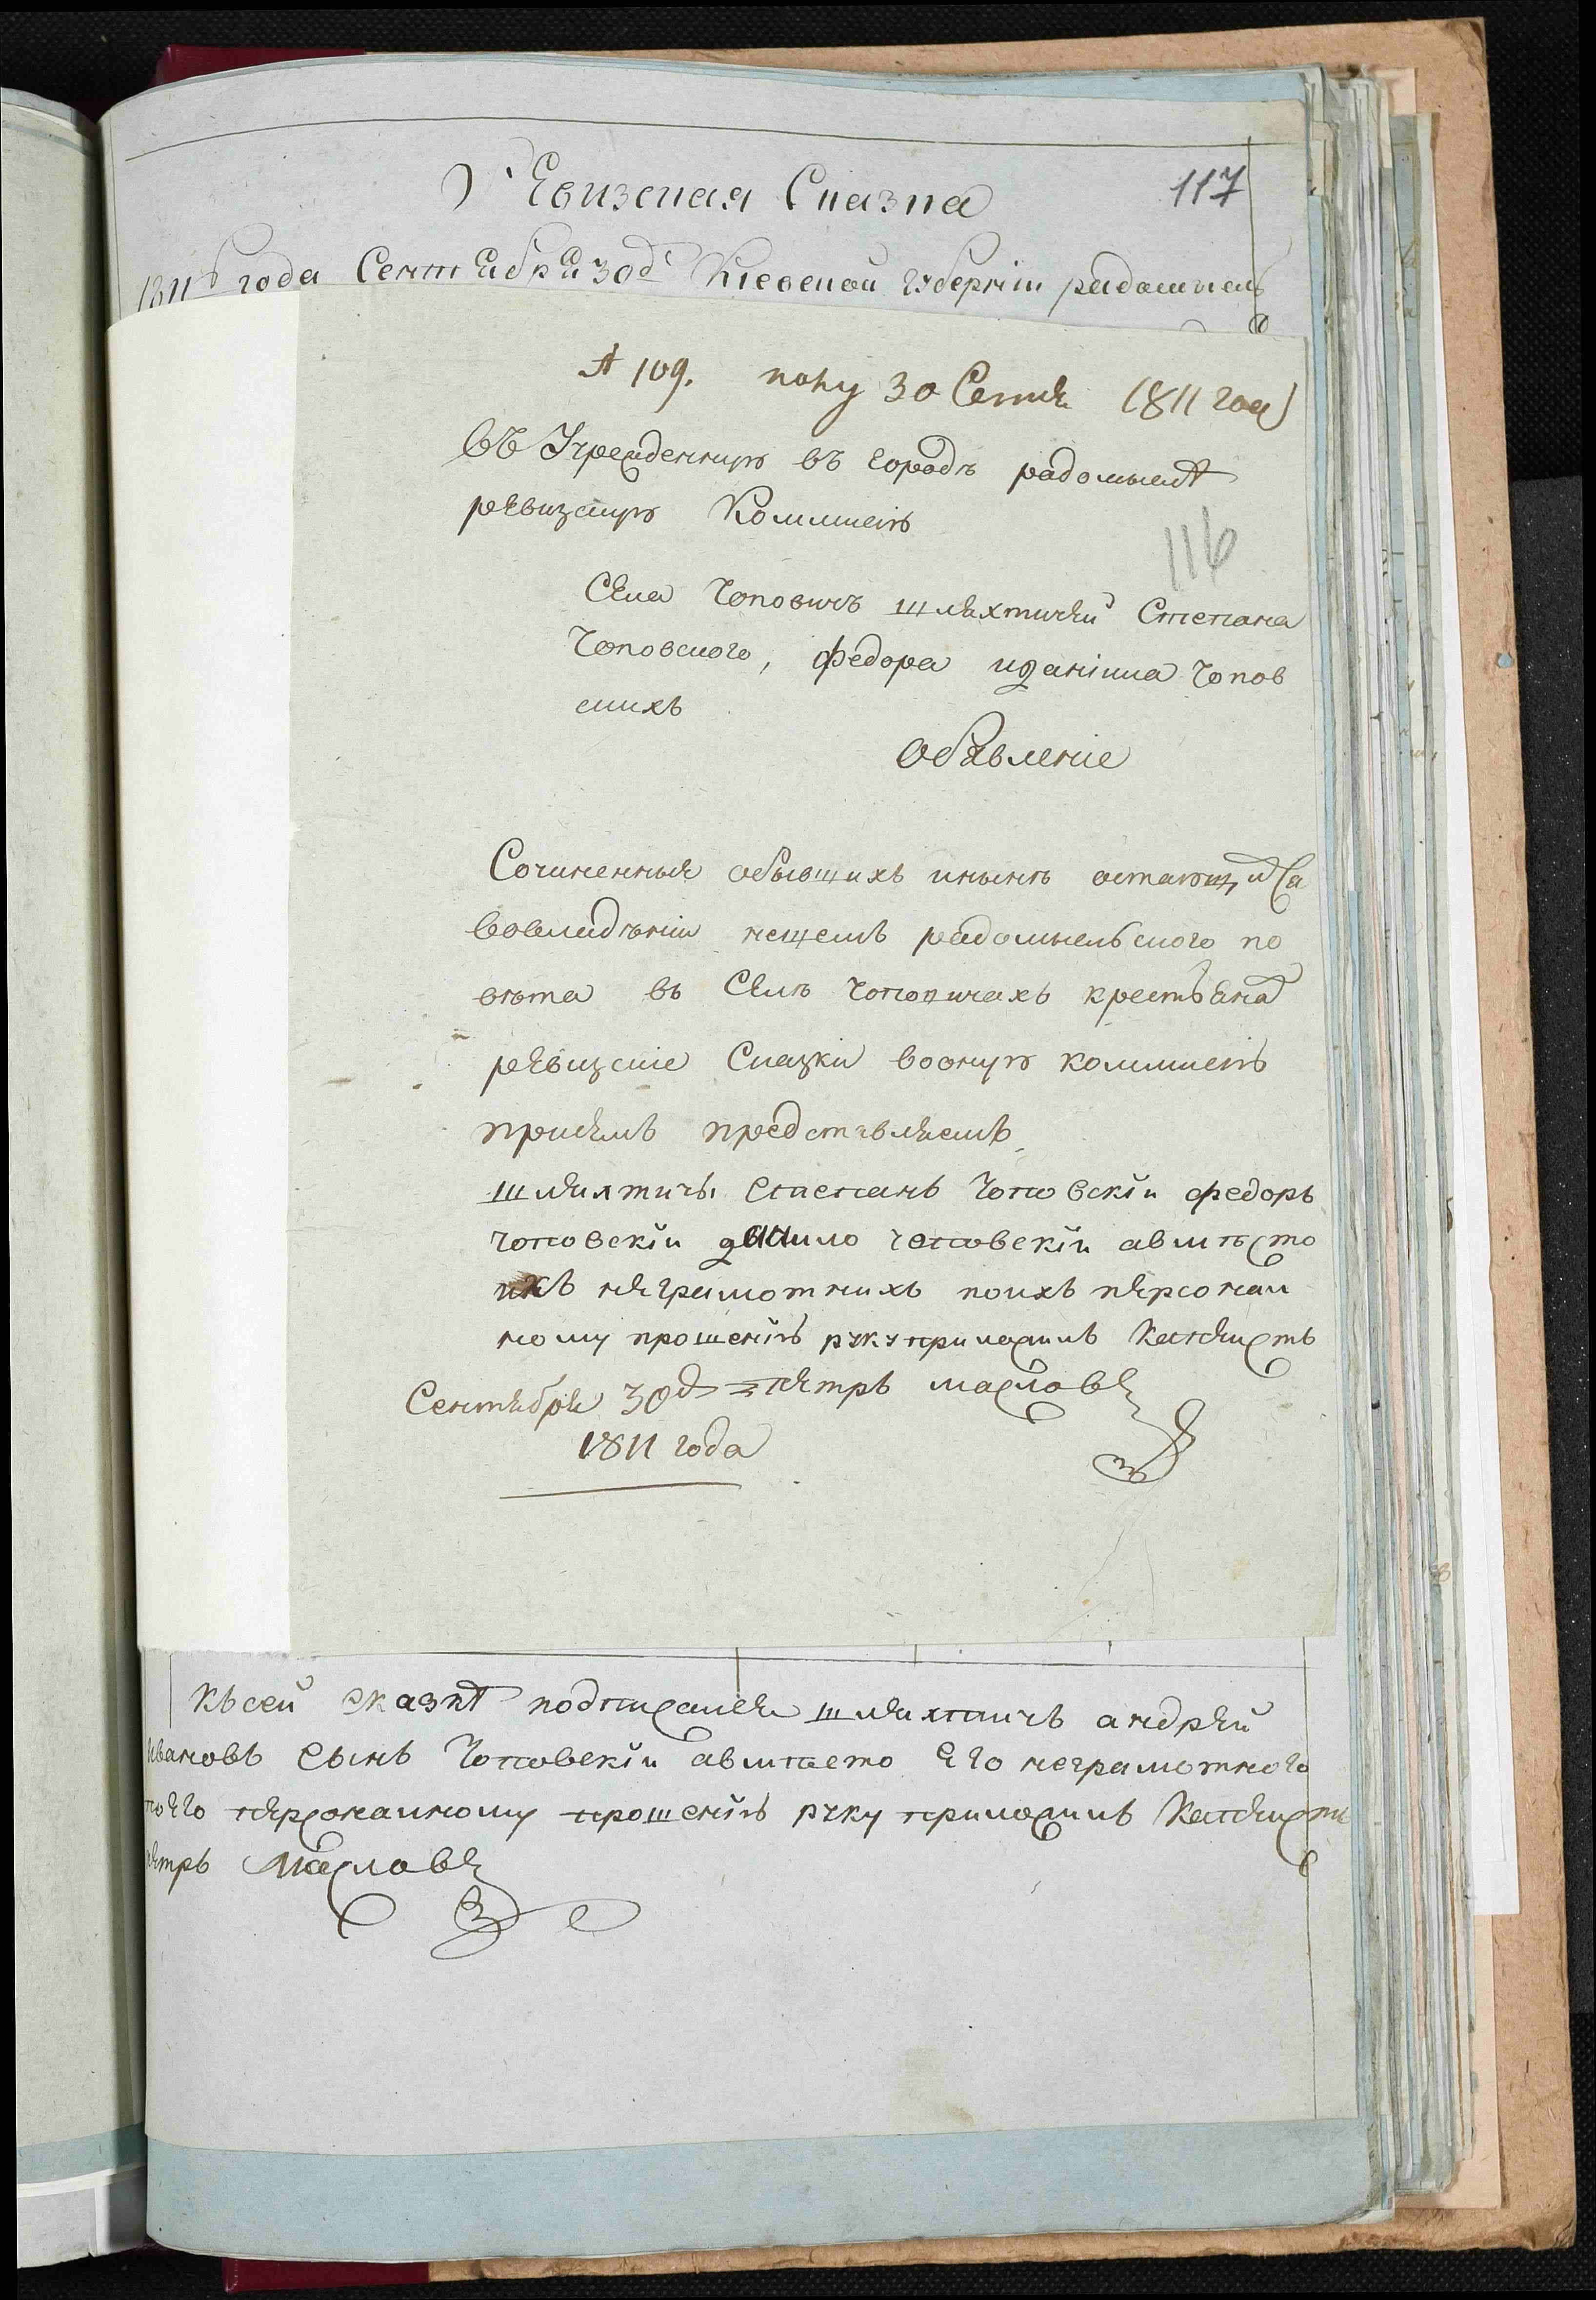 Ревизская Сказка
117
1811го года Сентября 30д Киевской губернии радомысль
№ 109. полу 30 Сентя 1811 года
въ Учрежденную въ городѣ радомыслѣ
ревизскую Коммисію
116
Села Чоповичъ шляхтичей Степана
Чоповского, федора и данила Чопов
скихъ
Объявленіе
Сочиненныя обывшихъ инынѣ остающихся
вовладѣніи нашемъ радомысльского по
вѣта въ Селѣ Чоповичахъ крестьяна
ревизскіе Сказки вооную коммисію
присемъ представляемъ
шляхтичы степанъ Чоповскій федоръ
чоповскій данило чоповскій авмѣсто
ихъ неграмотнихъ поихъ персонал
ному прошенію руку приложилъ Капеисть
Сентября 30д петръ масловъ
1811 года
Късей сказкѣ подписался шляхтичъ андрей
Ивановъ сынъ Чоповскій авмѣсто его неграмотного
поего персоналному прошенію руку приложилъ Капеисть
петръ Масловъ